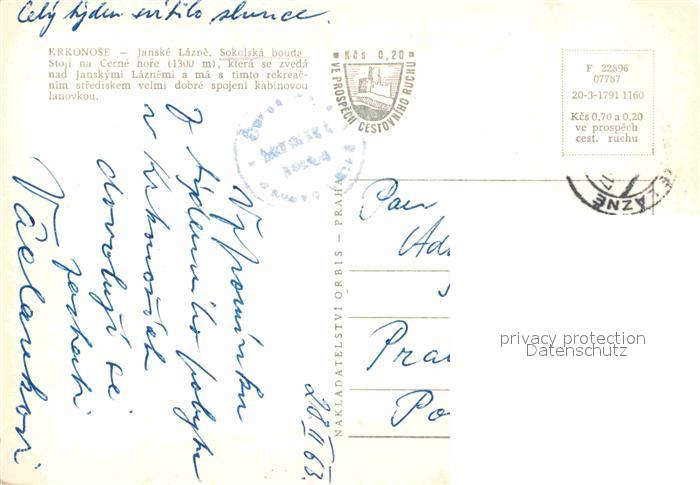 Celý týden svítilo slunce.
KRKONOŠE – Janské Lázně. Sokolská bouda
Stojí na Černé hoře (1300 m), která se zvedá
nad Janskými Lázněmi a má s tímto rekreač-
ním střediskem velmi dobré spojení kabinovou
lanovkou.
Kčs 0,20
VE PROSPĚCH CESTOVNÍHO RUCHU
F 22896
07787
20-3-1791 1160
Kčs 0,70 a 0,20
ve prospěch
cest. ruchu
LÁZNĚ
Vzpomínku
z týdenního pobytu
v Krkonoších
dovolují si
zaslati
Václavkovi
28. II 63.
NAKLADATELSTVÍ ORBIS – PRAHA
Pan
privacy protection
Datenschutz